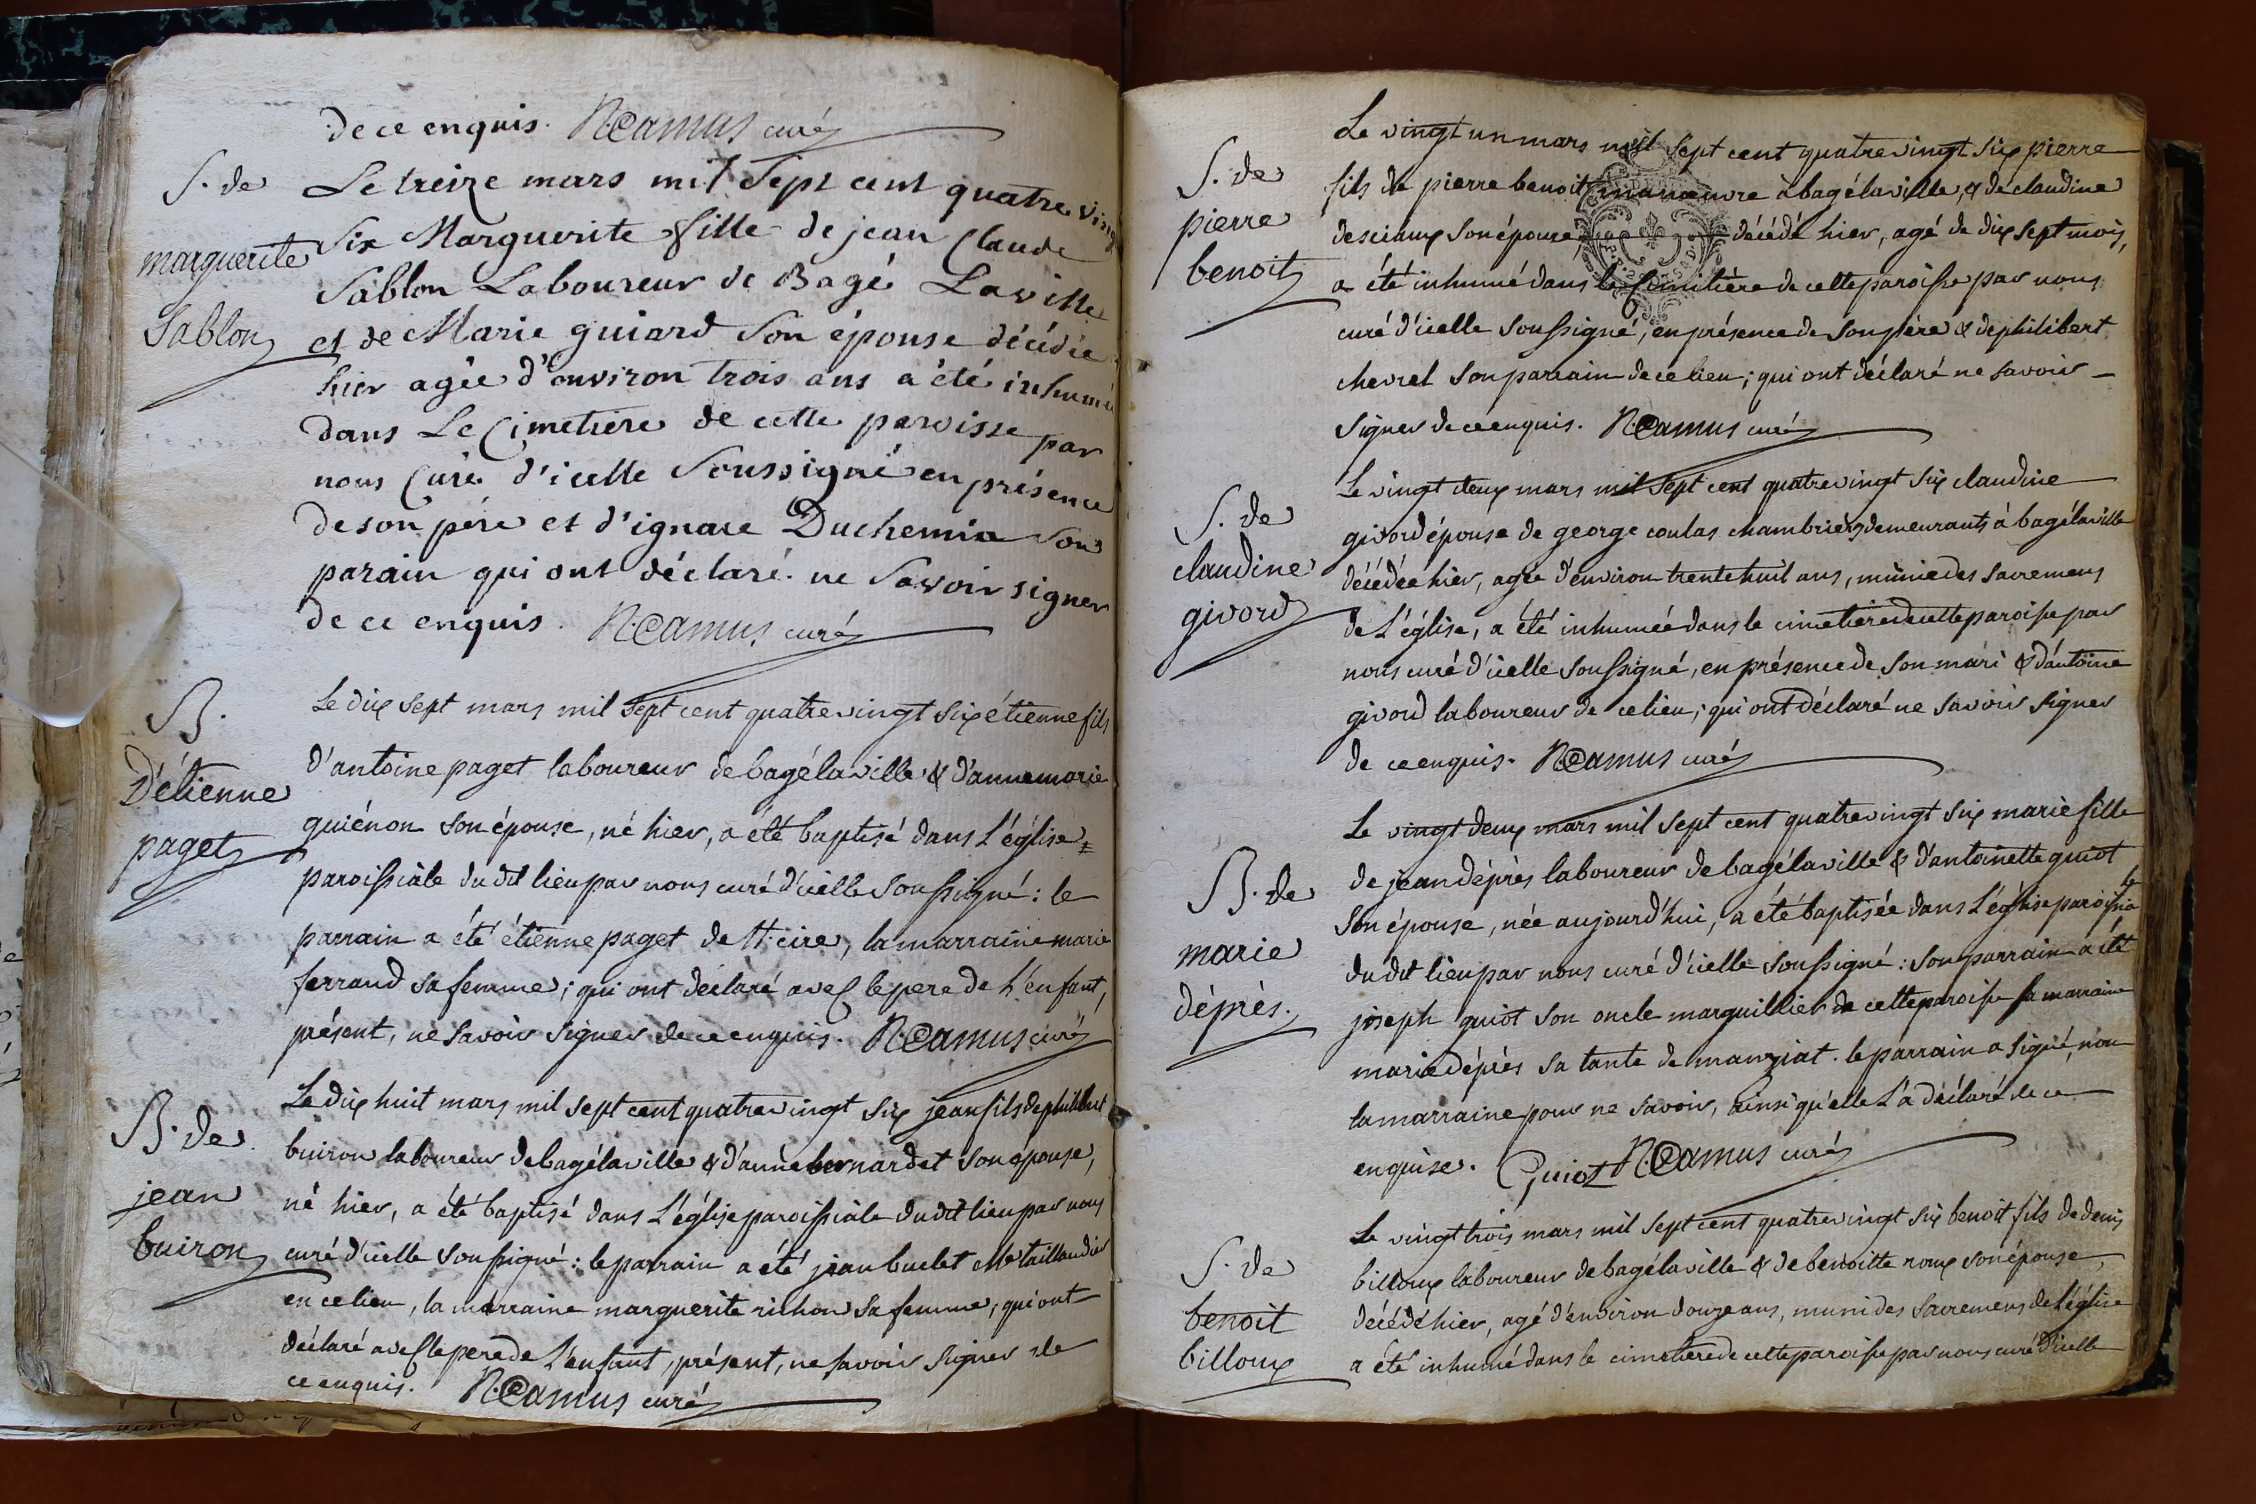 de ce enquis. N. Camus curé
S. de
marguerite
Sablon
Le treize mars mil Sept cent quatre vingt
Six Marguerite fille de jean Claude
Sablon Laboureur de Bagé Laville
et de Marie guiard Son épouse décédée
hier agée d'environ trois ans a été inhumé
dans Le Cimetiere de cette paroisse par
nous Curé d'icelle Soussigné en présence
de son pere et d'ignace Duchemin Son
parain qui ont déclaré ne Savoir signer
de ce enquis. N. Camus curé
B.
D'étienne
paget
Le dix sept mars mil sept cent quatre vingt six étienne fils
d'antoine paget laboureur de bagé la ville & d'anne marie
guiénon son épouse, né hier, a été baptisé dans L'église
paroissiale du dit lieu par nous curé d'icelle soussigné : le
parrain a été étienne paget de St. cire, la marraine marie
ferrand sa femme ; qui ont déclaré avec le pere de L'enfant,
présent, ne savoir signer de ce enquis. N. Camus curé
B. de
jean
buiron
Le dix huit mars mil sept cent quatre vingt six jean fils de philibert
buiron laboureur de bagé la ville & d'anne bernardet son épouse,
né hier, a été baptisé dans L'église paroissiale du dit lieu par nous
curé d'icelle soussigné : le parrain a été jean buclet Me taillandier
en ce lieu, la marraine marguerite richon sa femme ; qui ont
déclaré avec le pere de L'enfant, présent, ne savoir signer de
ce enquis. N. Camus curé
S. de
pierre
benoit
Le vingt un mars mil sept cent quatre vingt six pierre
fils de pierre benoit manœuvre à bagé la ville, & de claudine
desciaux son épouse, décédé hier, agé de dix sept mois,
a été inhumé dans le cimitière de cette paroisse par nous
curé d'icelle soussigné, en présence de son père & de philibert
chevrel son parrain de ce lieu ; qui ont déclaré ne savoir
signer de ce enquis. N. Camus curé
S. de
claudine
givord
Le vingt deux mars mil sept cent quatre vingt six claudine
givord épouse de george coulas chambrier, demeurants à bagé la ville
décédée hier, agée d'environ trente huit ans, munie des sacremens
de L'église, a été inhumée dans le cimetière de cette paroisse par
nous curé d'icelle soussigné, en présence de son mari & d'antoine
givord laboureur de ce lieu ; qui ont déclaré ne savoir signer
de ce enquis. N. Camus curé
B. de
marie
déprès.
Le vingt deux mars mil sept cent quatre vingt six marie fille
de jean déprès laboureur de bagé la ville & d'antoinette guiot
son épouse, née aujourd'hui, a été baptisée dans L'église paroissiale
du dit lieu par nous curé d'icelle soussigné : son parrain a été
joseph guiot son oncle marguillier de cette paroisse sa marraine
marie déprès sa tante de manziat. le parrain a signé, non
la marraine pour ne savoir, ainsi qu'elle L'a déclaré de ce
enquise. Guiot N. Camus curé
S. de
benoit
billoux
Le vingt trois mars mil sept cent quatre vingt six benoit fils de denis
billoux laboureur de bagé la ville & de benoitte roux son épouse,
décédé hier, agé d'environ douze ans, muni des sacremens de L'église
a été inhumé dans le cimetière de cette paroisse par nous curé d'icelle